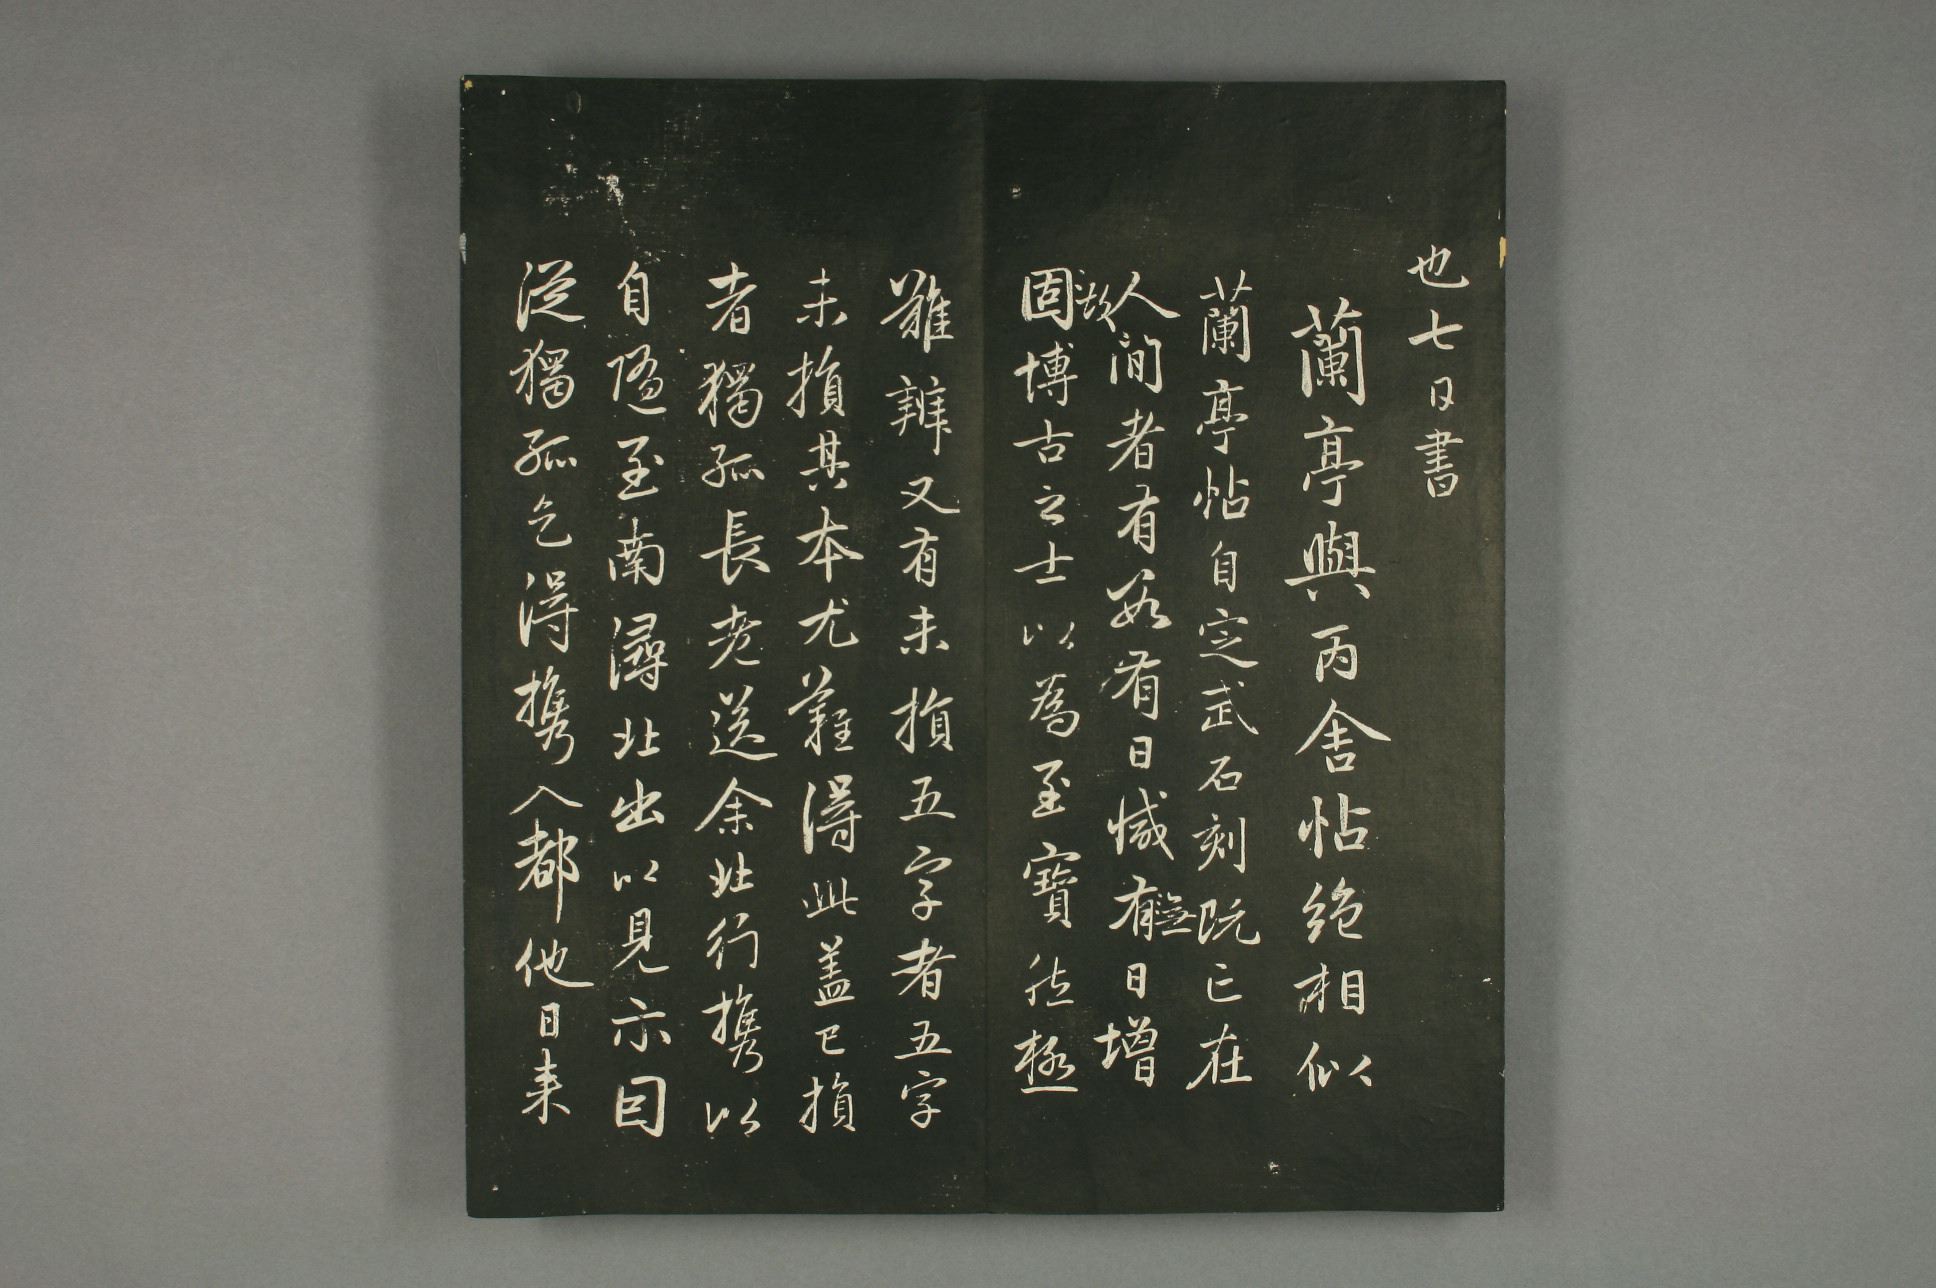 也七日書
蘭亭與丙舍帖絕相似
蘭亭帖自定武石刻既亡在
人間者有數有日減有無日增
固故博古之士以為至寶然極
難辨又有未損五字者五字
未損其本尤難得此蓋已損
者獨孤長老送余北行攜以
自隨至南潯北出以見示因
從獨孤乞得攜入都他日來